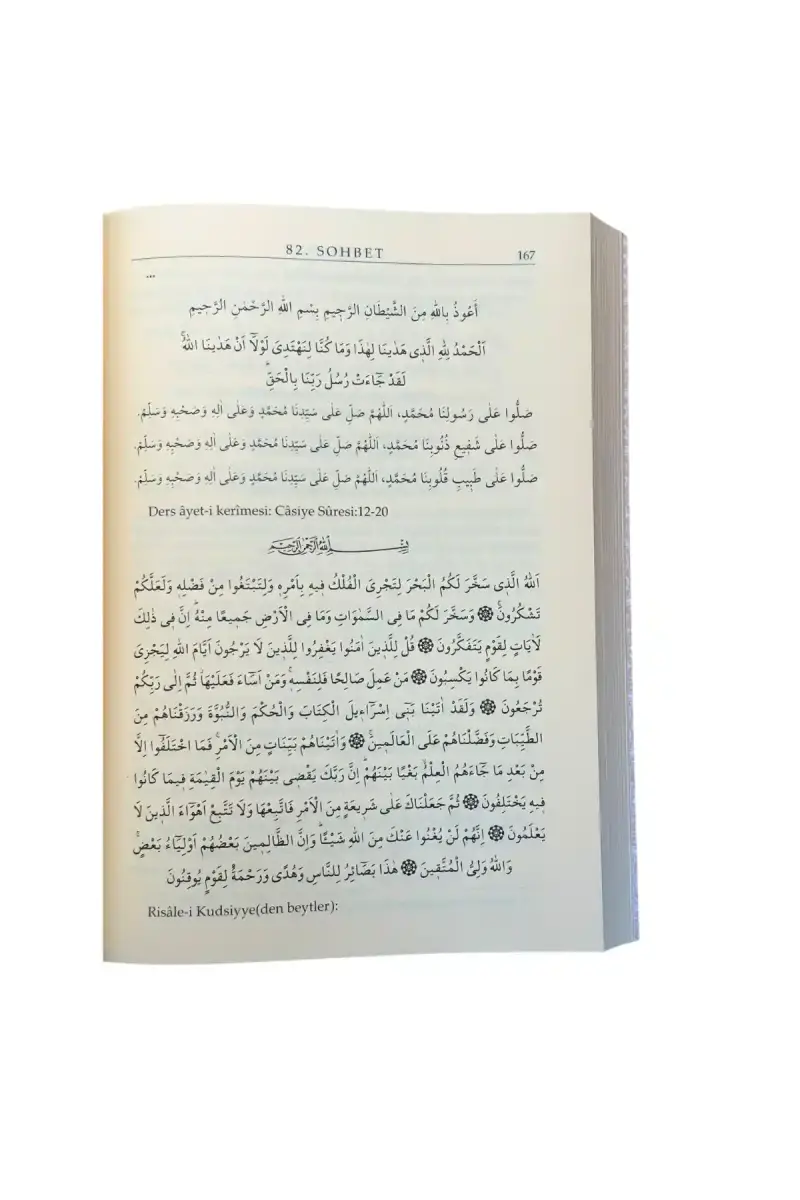 82. SOHBET 167
...
اَعُوذُ بِاللّٰهِ مِنَ الشَّيْطَانِ الرَّج۪يمِ بِسْمِ اللّٰهِ الرَّحْمٰنِ الرَّح۪يمِ
اَلْحَمْدُ لِلّٰهِ الَّذ۪ى هَدٰينَا لِهٰذَا وَمَا كُنَّا لِنَهْتَدِىَ لَوْلَٓا اَنْ هَدٰينَا اللّٰهُۚ
لَقَدْ جَٓاءَتْ رُسُلُ رَبِّنَا بِالْحَقِّۜ
صَلُّوا عَلٰى رَسُولِنَا مُحَمَّدٍ، اَللّٰهُمَّ صَلِّ عَلٰى سَيِّدِنَا مُحَمَّدٍ وَعَلٰى اٰلِهِ وَصَحْبِهِ وَسَلِّمْ.
صَلُّوا عَلٰى شَف۪يعِ ذُنُوبِنَا مُحَمَّدٍ، اَللّٰهُمَّ صَلِّ عَلٰى سَيِّدِنَا مُحَمَّدٍ وَعَلٰى اٰلِهِ وَصَحْبِهِ وَسَلِّمْ.
صَلُّوا عَلٰى طَب۪يبِ قُلُوبِنَا مُحَمَّدٍ، اَللّٰهُمَّ صَلِّ عَلٰى سَيِّدِنَا مُحَمَّدٍ وَعَلٰى اٰلِهِ وَصَحْبِهِ وَسَلِّمْ.
Ders âyet-i kerîmesi: Câsiye Sûresi:12-20
بِسْمِ اللّٰهِ الرَّحْمٰنِ الرَّحِيمِ
اَللّٰهُ الَّذ۪ى سَخَّرَ لَكُمُ الْبَحْرَ لِتَجْرِىَ الْفُلْكُ ف۪يهِ بِاَمْرِه۪ وَلِتَبْتَغُوا مِنْ فَضْلِه۪ وَلَعَلَّكُمْ
تَشْكُرُونَۚ ۞ وَسَخَّرَ لَكُمْ مَا فِى السَّمٰوَاتِ وَمَا فِى الْاَرْضِ جَم۪يعًا مِنْهُۜ اِنَّ ف۪ى ذٰلِكَ
لَاٰيَاتٍ لِقَوْمٍ يَتَفَكَّرُونَ ۞ قُلْ لِلَّذ۪ينَ اٰمَنُوا يَغْفِرُوا لِلَّذ۪ينَ لَا يَرْجُونَ اَيَّامَ اللّٰهِ لِيَجْزِىَ
قَوْمًا بِمَا كَانُوا يَكْسِبُونَ ۞ مَنْ عَمِلَ صَالِحًا فَلِنَفْسِه۪ۚ وَمَنْ اَسَٓاءَ فَعَلَيْهَاۘ ثُمَّ اِلٰى رَبِّكُمْ
تُرْجَعُونَ ۞ وَلَقَدْ اٰتَيْنَا بَن۪ٓى اِسْرَٓاء۪يلَ الْكِتَابَ وَالْحُكْمَ وَالنُّبُوَّةَ وَرَزَقْنَاهُمْ مِنَ
الطَّيِّبَاتِ وَفَضَّلْنَاهُمْ عَلَى الْعَالَم۪ينَۚ ۞ وَاٰتَيْنَاهُمْ بَيِّنَاتٍ مِنَ الْاَمْرِۚ فَمَا اخْتَلَفُٓوا اِلَّا
مِنْ بَعْدِ مَا جَٓاءَهُمُ الْعِلْمُۙ بَغْيًا بَيْنَهُمْۜ اِنَّ رَبَّكَ يَقْض۪ى بَيْنَهُمْ يَوْمَ الْقِيٰمَةِ ف۪يمَا كَانُوا
ف۪يهِ يَخْتَلِفُونَ ۞ ثُمَّ جَعَلْنَاكَ عَلٰى شَر۪يعَةٍ مِنَ الْاَمْرِ فَاتَّبِعْهَا وَلَا تَتَّبِعْ اَهْوَٓاءَ الَّذ۪ينَ لَا
يَعْلَمُونَ ۞ اِنَّهُمْ لَنْ يُغْنُوا عَنْكَ مِنَ اللّٰهِ شَيْـًٔاۜ وَاِنَّ الظَّالِم۪ينَ بَعْضُهُمْ اَوْلِيَٓاءُ بَعْضٍۚ
وَاللّٰهُ وَلِىُّ الْمُتَّق۪ينَ ۞ هٰذَا بَصَٓائِرُ لِلنَّاسِ وَهُدًى وَرَحْمَةٌ لِقَوْمٍ يُوقِنُونَ
Risâle-i Kudsiyye(den beytler):